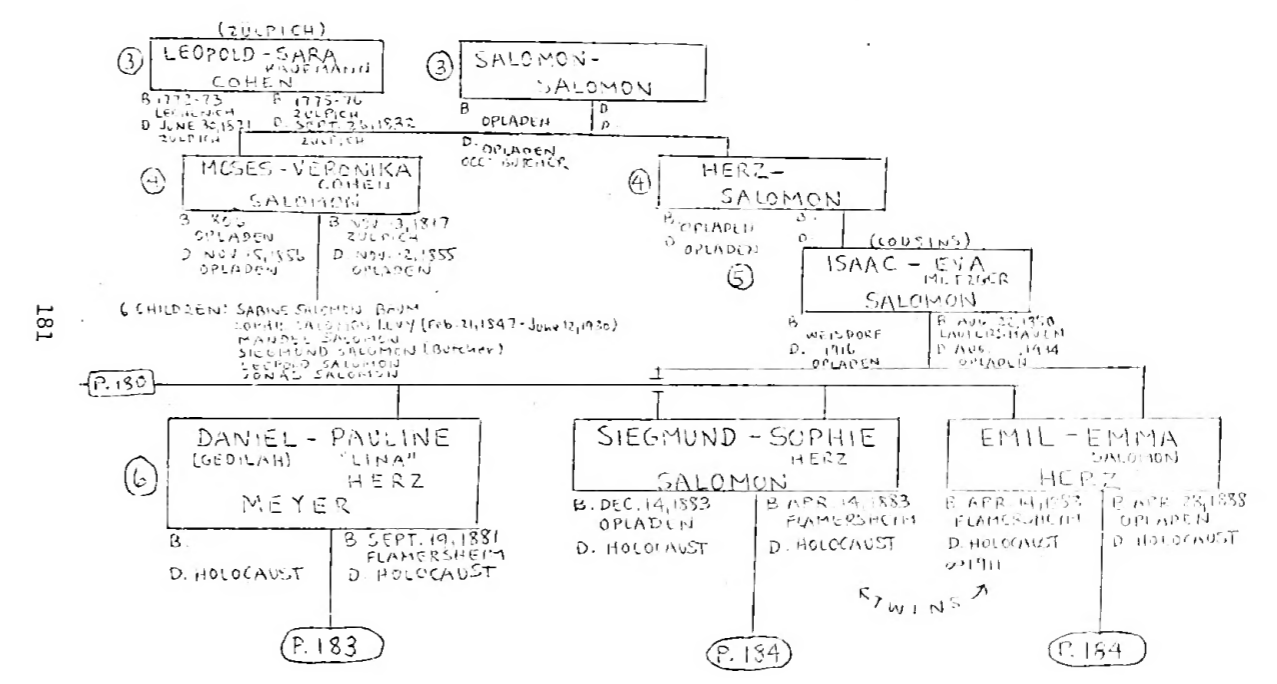 (ZÜLPICH)
③ LEOPOLD - SARA
KAUFMANN
COHEN
B 1772-73
LECHENICH
D JUNE 30, 1821
ZÜLPICH
B 1775-76
ZÜLPICH
D. SEPT. 26, 1832
ZÜLPICH
③ SALOMON-
SALOMON
B
OPLADEN
D. OPLADEN
OCC: BUTCHER
B
D.
④ MOSES - VERONIKA
COHEN
SALOMON
B
OPLADEN
D NOV. 15, 1856
OPLADEN
B NOV. 13, 1817
ZÜLPICH
D. NOV. 12, 1855
OPLADEN
④ HERZ-
SALOMON
B. OPLADEN
D OPLADEN
B.
D.
(COUSINS)
⑤ ISAAC - EVA
METZGER
SALOMON
B
WEISDORF
D. 1916
OPLADEN
B AUG. 22,
D AUG. , 1934
OPLADEN
6 CHILDREN: SABINE SALOMON BAUM
SOPHIE SALOMON LEVY (Feb. 21, 1847 - June 12, 1930)
MANDEL SALOMON
SIEGMUND SALOMON (Butcher)
LEOPOLD SALOMON
JONAS SALOMON
181
P. 180
⑥ DANIEL - PAULINE
(GEDILAH) "LINA"
HERZ
MEYER
B.
D. HOLOCAUST
B SEPT. 19, 1881
FLAMERSHEIM
D. HOLOCAUST
SIEGMUND - SOPHIE
HERZ
SALOMON
B. DEC. 14, 1883
OPLADEN
D. HOLOCAUST
B APR. 14, 1883
FLAMERSHEIM
D. HOLOCAUST
EMIL - EMMA
SALOMON
HERZ
B APR. 14, 1883
FLAMERSHEIM
D. HOLOCAUST
∞1911
B APR. 28, 1888
OPLADEN
D HOLOCAUST
↖ TWINS ↗
P. 183
P. 184
P. 184